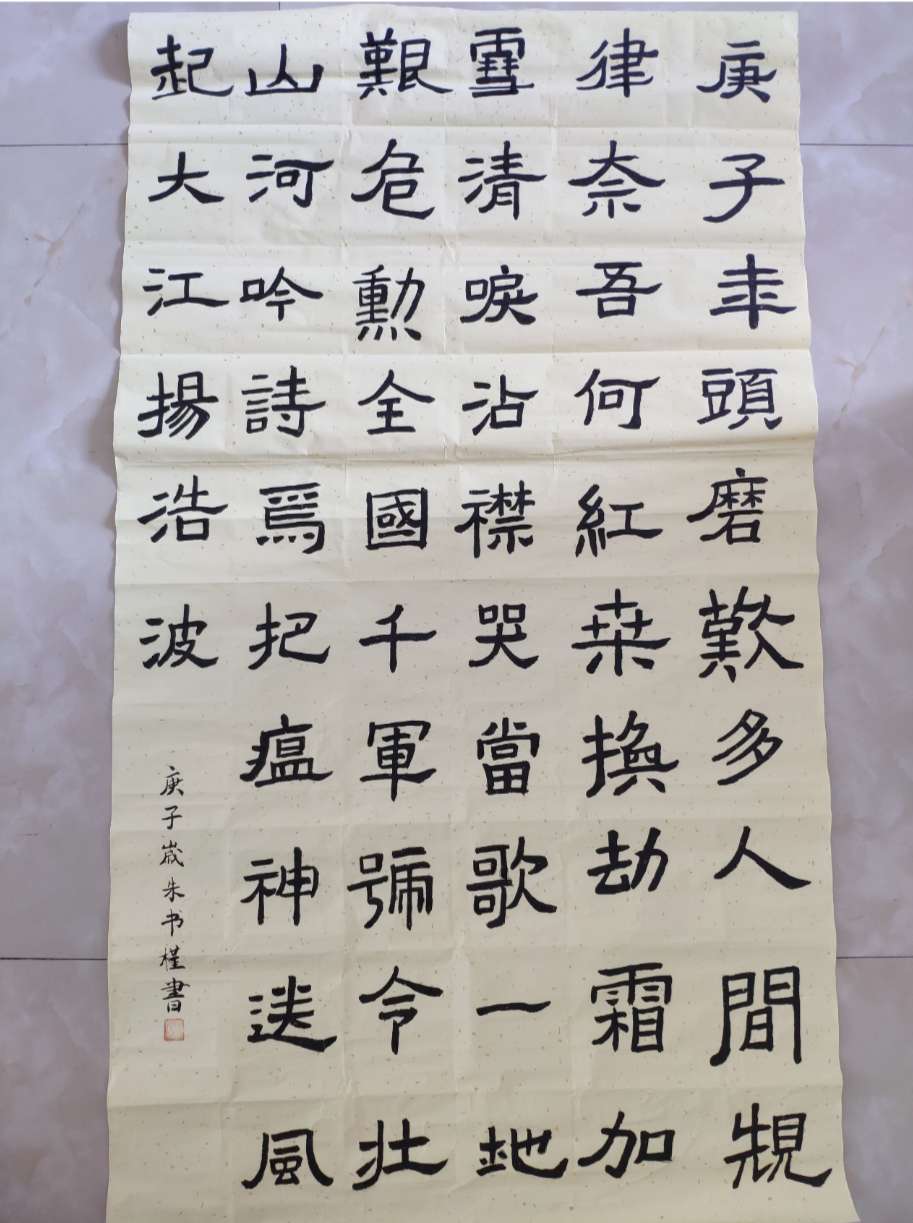 庚子年頭磨歎多人間規
律奈吾何紅桒換劫霜加
雪清唳沾襟哭當歌一地
艱危勳全國千軍號令壯
山河吟詩焉把瘟神送風
起大江揚浩波
庚子嵗朱书槿書